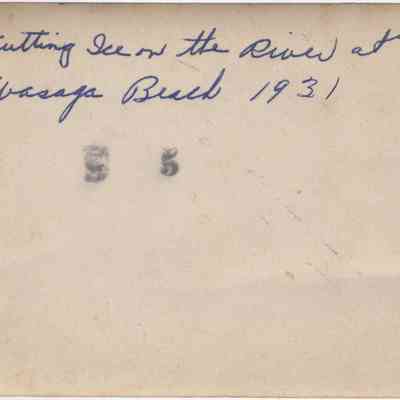 Cutting Ice on the River at
Wasaga Beach 1931
5 5